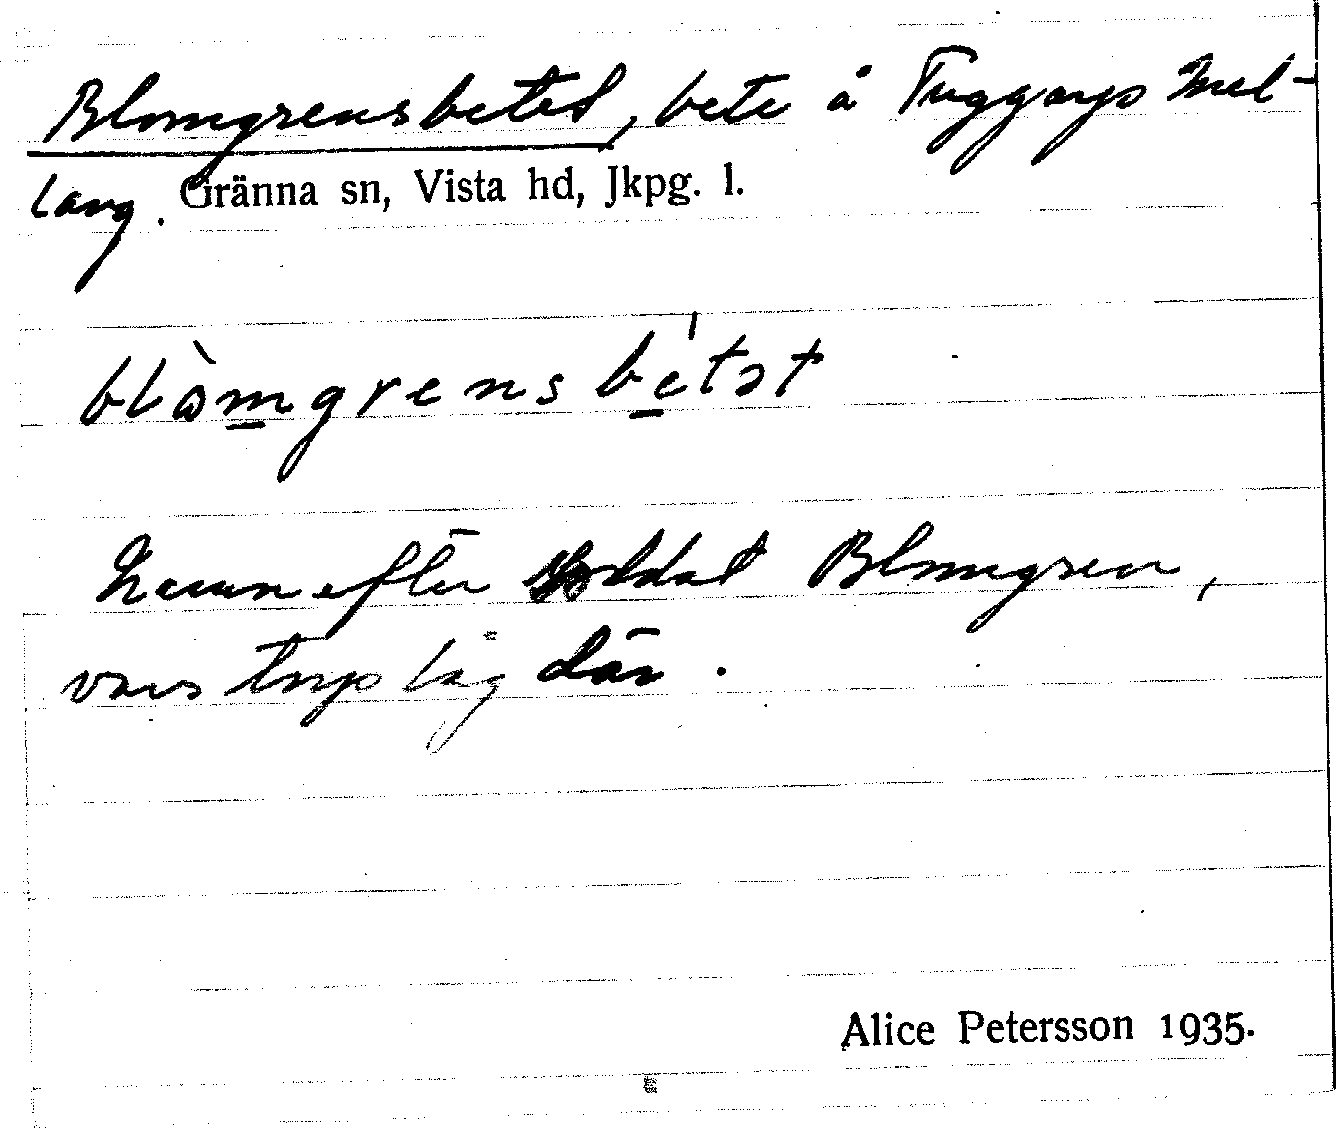 Blomgrensbetet, bete å Tuggarp Mel-
lang. Gränna sn, Vista hd, Jkpg. l.
blòmgrensbétət
Namn efter soldat Blomgren,
vars torp låg där.
Alice Petersson 1935.